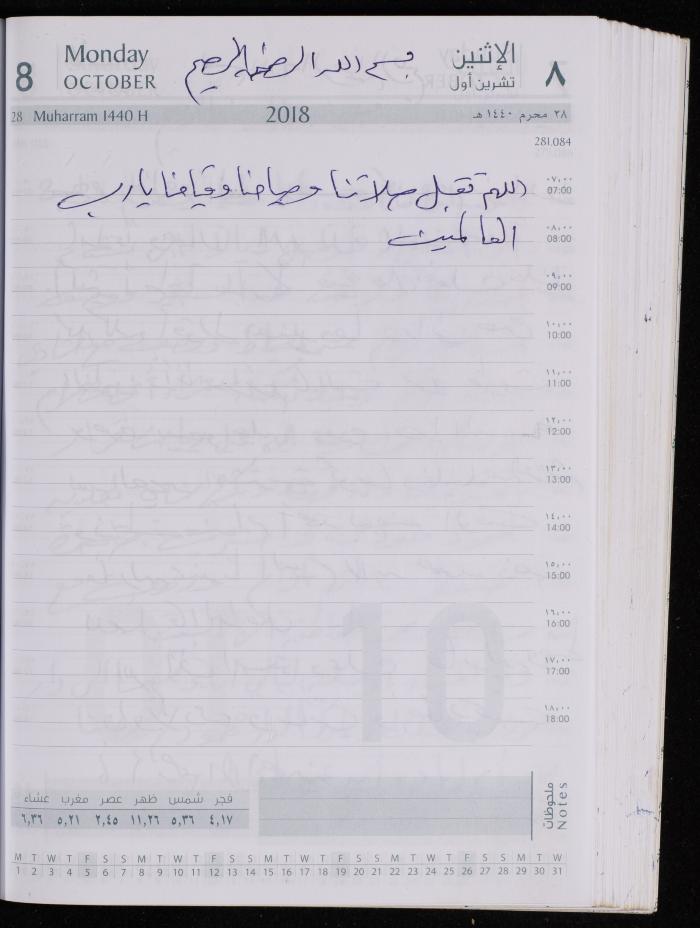 8 Monday بسم الله الرحمن الرحيم الإثنين ٨
OCTOBER تشرين أول
28 Muharram 1440 H 2018 ٢٨ محرم ١٤٤٠ هـ
281.084
اللهم تقبل صلاتنا وصيامنا وقيامنا يا رب
العالمين
٠٧,٠٠
07:00
٠٨,٠٠
08:00
٠٩,٠٠
09:00
١٠,٠٠
10:00
١١,٠٠
11:00
١٢,٠٠
12:00
١٣,٠٠
13:00
١٤,٠٠
14:00
١٥,٠٠
15:00
١٦,٠٠
16:00
١٧,٠٠
17:00
١٨,٠٠
18:00
10
ملحوظات
Notes
فجر شمس ظهر عصر مغرب عشاء
٤,١٧ ٥,٣٦ ١١,٢٦ ٢,٤٥ ٥,٢١ ٦,٣٦
M T W T F S S M T W T F S S M T W T F S S M T W T F S S M T W
1 2 3 4 5 6 7 8 9 10 11 12 13 14 15 16 17 18 19 20 21 22 23 24 25 26 27 28 29 30 31